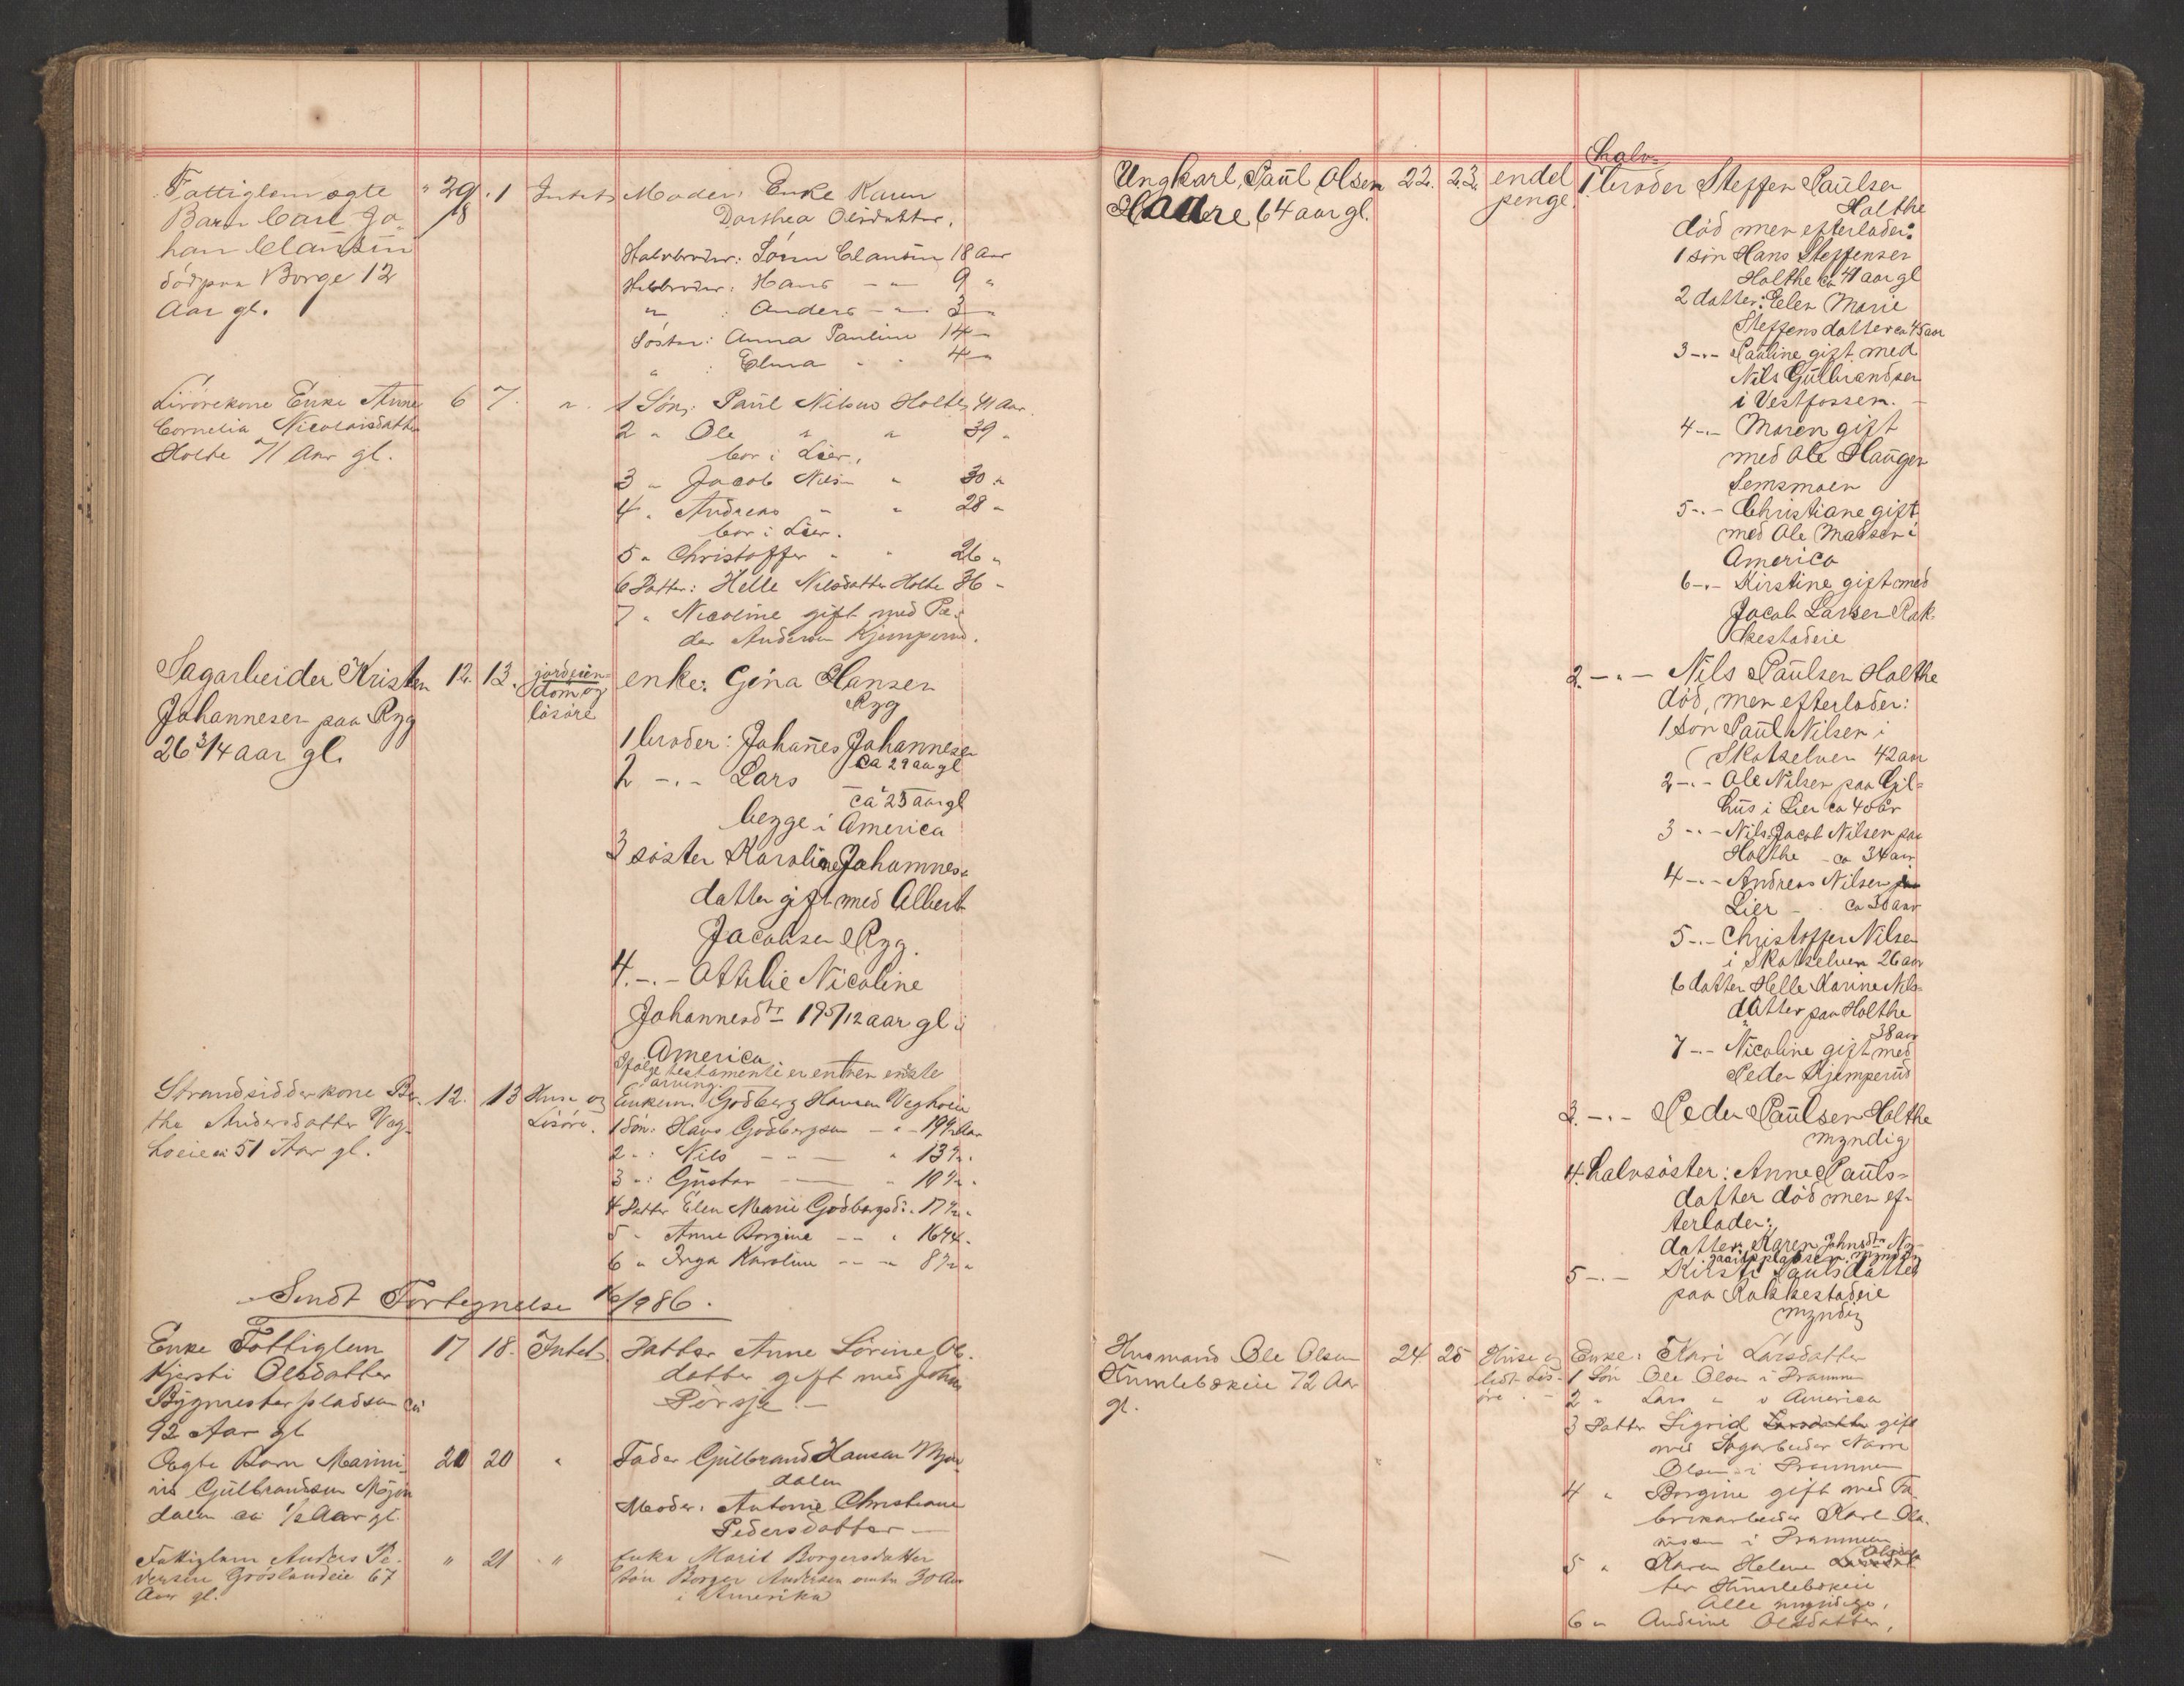 Fattiglem ægte " 29/18 . 1 Intet Moder: Enke Karen
Barn Carl Jo- Dorthea Olsdatter.
han Clausen Halvbroder: Sören Clausen 18 Aar
död paa Borge 12 Halvbroder: Hans - " - 9 "
Aar gl. " : Anders - " - 3 -
Söster: Anna Pauline 14 -
" : Elma - - 4 -
Enke Anne 6 7. ". 1 Sön: Paul Nilsen Holthe 41 Aar.
Cornelia Nicolaisdatter 2 " Ole " " 39 "
Holthe 71 Aar gl. bor i Lier,
3 " Jacob Nils- " 30 "
4 " Andreas - " 28 "
bor i Lier.
5 " Christoffer " " 26 "
6 Datter: Helle Nilsdatter Holthe 36 -
7 " Nicoline gift med Pe-
der Andersen Kjemperud.
Sagarbeider Kristen 12. 13. jordeien- enke: Gina Hansen
dom og Ryg
Johannesen paa Ryg lösöre 1 broder: Johañes Johannesen
26 3/4 aar gl. ca 29 aar gl
2 -.- Lars
ca 25 aar gl
begge i America
3 söster Karoline Johannes-
datter gift med Albert
Jacobsen Ryg.
4.-.- Attilie Nicoline
Johannesdtr 19 5/12 aar gl i
America.
Ifölge testamente er enken eneste
arving.
Strandsidderkone Ber- 12. 13 Huse og Enkem. Godberg Hansen Veghoien
the Andersdatter Veg- Lösöre. 1 Sön: Hans Godbergsen - " - 19 1/2 Aar
hoien 51 Aar gl. 2 - : Nils - " - " 13 1/2 "
3 " : Gustav - " 10 1/2 "
4 Datter Elen Marie Godbergsd. - 17 1/2 "
5 " Anne Borgine - - " 16 1/4 "
6 " Inga Karoline - - " 8 1/2 "
Sendt Fortegnelse 16/9 86.
Enke Fattiglem 17 18. Intet. Datter Anne Sörine Ols-
Kjersti Olsdatter datter gift med Johan
Bygmesterpladsen ca
92 Aar gl
Ægte Barn Marini- 20 20 " Fader Gulbrand Hansen Mjön-
us Gulbrandsen Mjön- dalen
dalen ca 1/2 Aar gl. Moder: Antonie Christiane
Pedersdatter -
Fattiglem Anders Pe- " 21 . " Enke Marit Borgersdatter
dersen Gröslandeie 67 Sön Borger Andersen omtr 30 Aar
Aar gl. i Amerika
halv-
Ungkarl, Paul Olsen 22. 23. endel 1 broder Steffen Paulsen
Haare 64 aar gl. penge. Holthe
död men efterlader:
1 sön Hans Steffensen
Holthe ca 41 aar gl
2 datter: Elen Marie
Steffensdatter ca 45 aar
3 -.- Pauline gift med
Nils Gulbrandsen
i Vestfossen. -
4 -.- Maren gift
med Ole Haugen
Semsmoen
5 -.- Christiane gift
med Ole Madsen i
America
6 -.- Kirstine gift med
Jacob Larsen Rak-
kestadeie
2. -.- Nils Paulsen Holthe
död, men efterlader:
1 sön Paul Nilsen i
Skotselven 42 aar
2 -.- Ole Nilsen paa Gil-
hus i Lier ca 40 år
3 -.- Nils Jacob Nilsen paa
Holthe - ca 34 aar
4 -.- Andreas Nilsen
Lier - ca 30 aar
5 -.- Christoffer Nilsen
i Skotselven 26 aar
6 datter Helle Karine Nils-
datter paa Holthe
38 aar
7 -.- Nicoline gift med
Peder Kjemperud
3. -.- Peder Paulsen Holthe
myndig
4. halvsöster: Anne Pauls-
datter död men ef-
terlader:
datter Karen Johnsdtr
myndig
5 -.- Kirsti Paulsdatter
paa Rakkestadeie
myndig
Husmand Ole Olsen 24 25 Huse og Enke: Kari Larsdatter
Humlebækeie 72 Aar lidt Lös- 1 Sön Ole Olsen i Drammen
gl. öre. - 2 " Lars " i America
3 Datter Sigrid gift
med Sagarbeider
Olsen i Drammen
4 " Borgine gift med Fa-
brikarbeider Karl Ola-
vissen i Drammen
5 " Karen Helene Olsdat-
ter Humlebækeie
Alle myndige,
6 " Andrine Olsdatter,